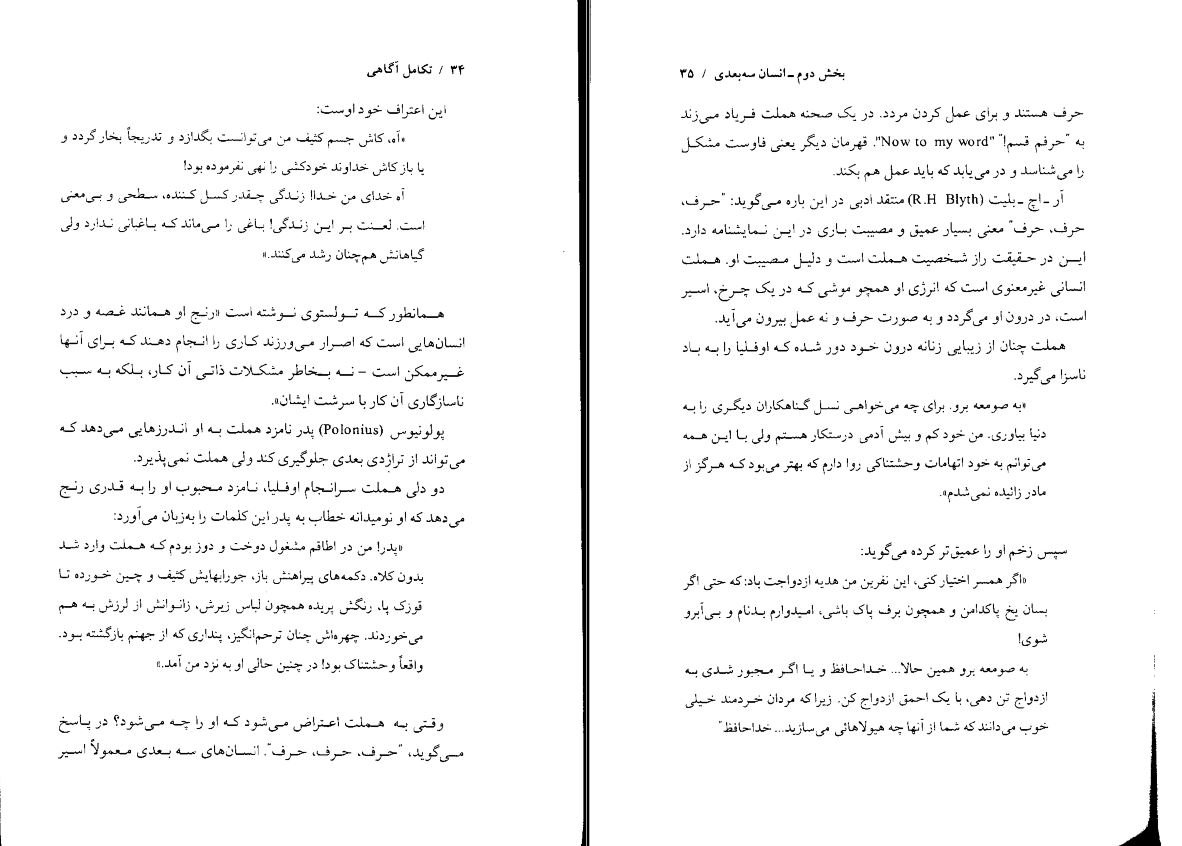 ۳۴ / تکامل آگاهی
این اعتراف خود اوست:
«آه، کاش جسم کثیف من می‌توانست بگدازد و تدریجاً بخار گردد و
یا باز کاش خداوند خودکشی را نهی نفرموده بود!
آه خدای من خدا! زندگی چقدر کسل کننده، سطحی و بی‌معنی
است. لعنت بر این زندگی! باغی را می‌ماند که باغبانی ندارد ولی
گیاهانش هم‌چنان رشد می‌کنند.»
همانطور که تولستوی نوشته است «رنج او همانند غصه و درد
انسان‌هایی است که اصرار می‌ورزند کاری را انجام دهند که برای آنها
غیرممکن است – نه بخاطر مشکلات ذاتی آن کار، بلکه به سبب
ناسازگاری آن کار با سرشت ایشان».
پولونیوس (Polonius) پدر نامزد هملت به او اندرزهایی می‌دهد که
می‌تواند از تراژدی بعدی جلوگیری کند ولی هملت نمی‌پذیرد.
دو دلی هملت سرانجام اوفلیا، نامزد محبوب او را به قدری رنج
می‌دهد که او نومیدانه خطاب به پدر این کلمات را به‌زبان می‌آورد:
«پدر! من در اطاقم مشغول دوخت و دوز بودم که هملت وارد شد
بدون کلاه. دکمه‌های پیراهنش باز، جورابهایش کثیف و چین خورده تا
قوزک پا، رنگش پریده همچون لباس زیرش، زانوانش از لرزش به هم
می‌خوردند. چهره‌اش چنان ترحم‌انگیز، پنداری که از جهنم بازگشته بود.
واقعاً وحشتناک بود! در چنین حالی او به نزد من آمد.»
وقتی به هملت اعتراض می‌شود که او را چه می‌شود؟ در پاسخ
می‌گوید، "حرف، حرف، حرف". انسان‌های سه بعدی معمولاً اسیر
بخش دوم ـ انسان سه‌بعدی / ۳۵
حرف هستند و برای عمل کردن مردد. در یک صحنه هملت فریاد می‌زند
به "حرفم قسم!" "Now to my word". قهرمان دیگر یعنی فاوست مشکل
را می‌شناسد و در می‌یابد که باید عمل هم بکند.
آر ـ اچ ـ بلیت (R.H Blyth) منتقد ادبی در این باره می‌گوید: "حرف،
حرف، حرف" معنی بسیار عمیق و مصیبت باری در این نمایشنامه دارد.
این در حقیقت راز شخصیت هملت است و دلیل مصیبت او. هملت
انسانی غیرمعنوی است که انرژی او همچو موشی که در یک چرخ، اسیر
است، در درون او می‌گردد و به صورت حرف و نه عمل بیرون می‌آید.
هملت چنان از زیبایی زنانه درون خود دور شده که اوفلیا را به باد
ناسزا می‌گیرد.
«به صومعه برو. برای چه می‌خواهی نسل گناهکاران دیگری را به
دنیا بیاوری. من خود کم و بیش آدمی درستکار هستم ولی با این همه
می‌توانم به خود اتهامات وحشتناکی روا دارم که بهتر می‌بود که هرگز از
مادر زائیده نمی‌شدم».
سپس زخم او را عمیق‌تر کرده می‌گوید:
«اگر همسر اختیار کنی، این نفرین من هدیه ازدواجت باد: که حتی اگر
بسان یخ پاکدامن و همچون برف پاک باشی، امیدوارم بدنام و بی‌آبرو
شوی!
به صومعه برو همین حالا... خداحافظ و یا اگر مجبور شدی به
ازدواج تن دهی، با یک احمق ازدواج کن. زیرا که مردان خردمند خیلی
خوب می‌دانند که شما از آنها چه هیولاهائی می‌سازید... خداحافظ"